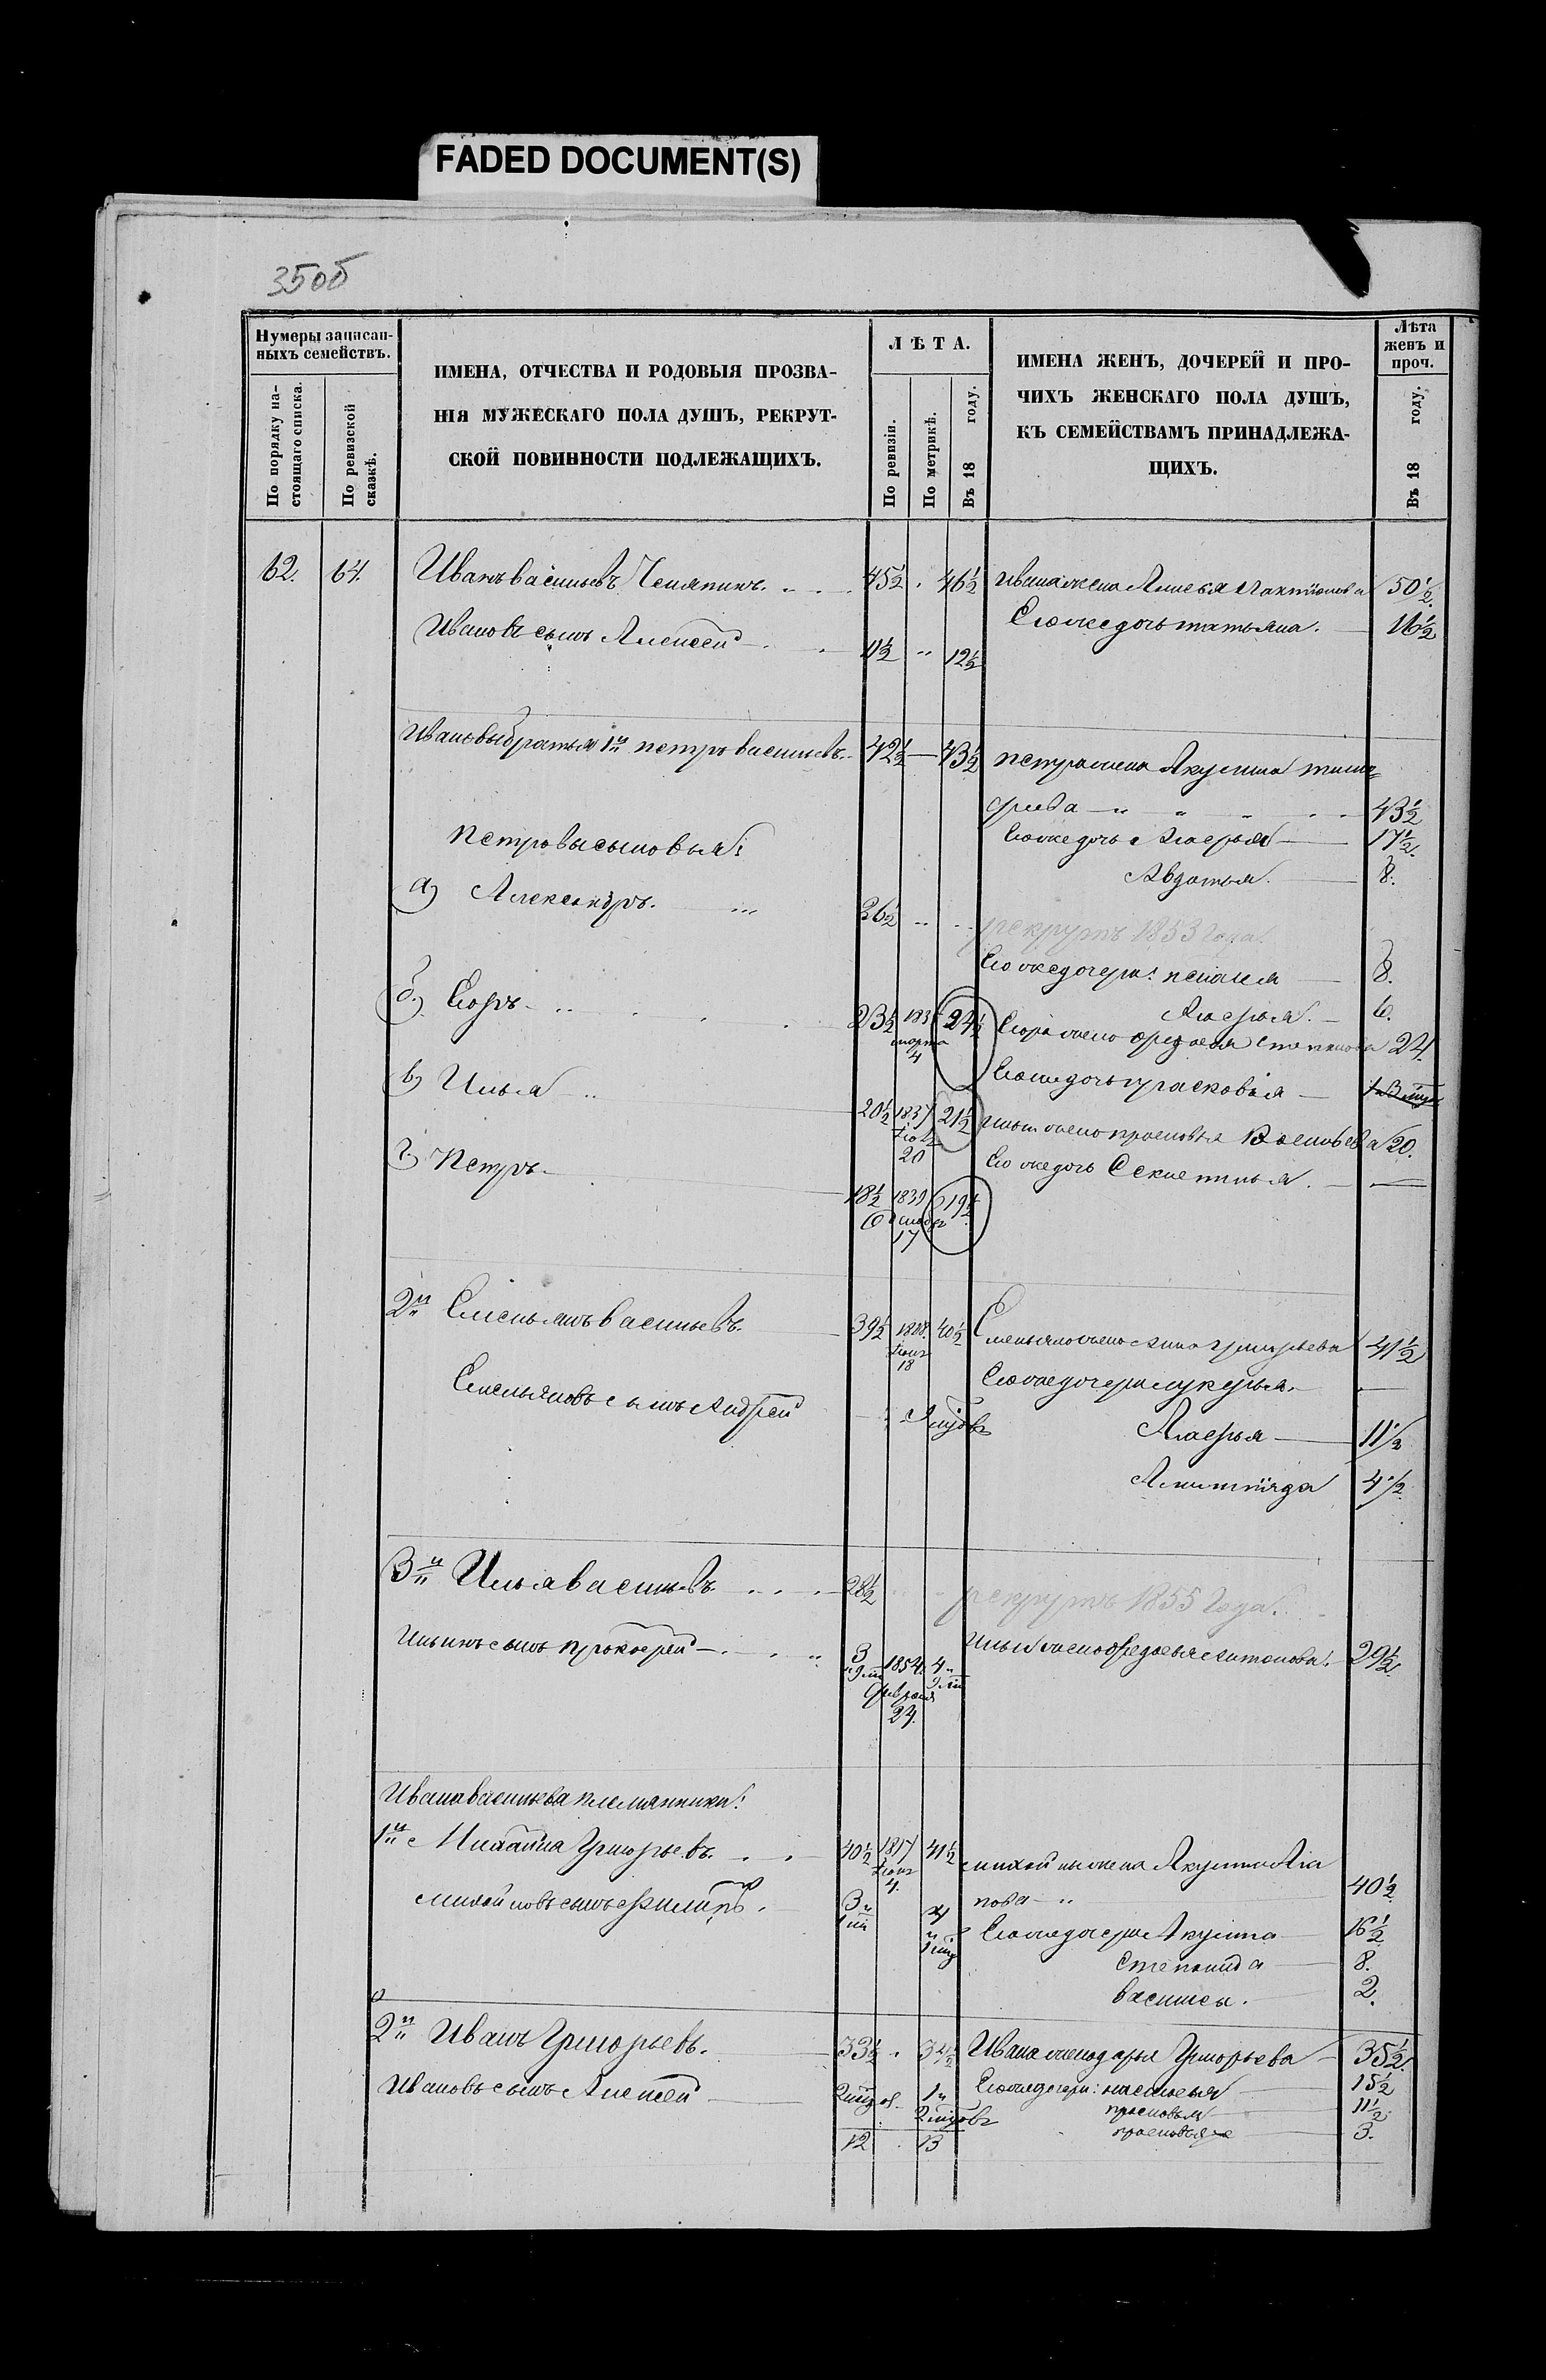 FADED DOCUMENT(S)
350б
Нумеры записан-
ныхъ семействъ.
По порядку на-
стоящаго списка.
По ревизской
сказкѣ.
ИМЕНА, ОТЧЕСТВА И РОДОВЫЯ ПРОЗВА-
НІЯ МУЖЕСКАГО ПОЛА ДУШЪ, РЕКРУТ-
СКОЙ ПОВИННОСТИ ПОДЛЕЖАЩИХЪ.
ЛѢТА.
По ревизіи.
По метрикѣ.
Въ 18 году.
ИМЕНА ЖЕНЪ, ДОЧЕРЕЙ И ПРО-
ЧИХЪ ЖЕНСКАГО ПОЛА ДУШЪ,
КЪ СЕМЕЙСТВАМЪ ПРИНАДЛЕЖА-
ЩИХЪ.
Лѣта
женъ и
проч.
Въ 18 году.
62. 64. Иванъ васильевъ 45½ 46½ Ивана жена 50½
Ивановъ сынъ Алексей 11½ 12½ Его же дочь татьяна. 16½
Ивановы братья 1й петръ васильевъ 42½ 43½ петра жена Акулина тимо
феева 43½
Петровы сыновья: Его же дочь Марья 17½
Авдотья. 8.
а) Александръ. 26½ рекрутъ 1853 года.
Его же дочери: пелагея 8.
Марья. 6.
б) Егоръ 23½ 183 марта 4 24½ Егора жена федосья Степанова 24.
Его же дочь прасковья
в) Илья 20½ 1837 Іюля 20 21½ Ильи жена прасковья Васильева 20.
Его же дочь
г) Петръ 18½ 1839 17 19½
2й Емельянъ васильевъ. 39½ 18 40½ Емельяна жена анна григорьева 41½
Его же дочери лукерья.
Емельяновъ сынъ Андрей Марья 11½
4½
3й Илья васильевъ 28½ рекрутъ 1855 года.
Ильинъ сынъ прокофей 3 1854. 4 Ильи жена федосья антонова. 29½
и 9 м февраля 9 м
24.
Ивана васильева племянники:
1й Михайла Григорьевъ. 40½ 1817 4. 41½ михайлы жена Акулина
пова 40½
михайловъ сынъ филипъ. 3 4 Его же дочери Акулина 16½
Степанида 8.
василиса. 2.
2й Иванъ Григорьевъ. 33½ 34½ Ивана жена дарья Григорьева 35½
Ивановъ сынъ Алексей 1 Его же дочери: настасья 15½
прасковья 11½
прасковья 3.
12 13